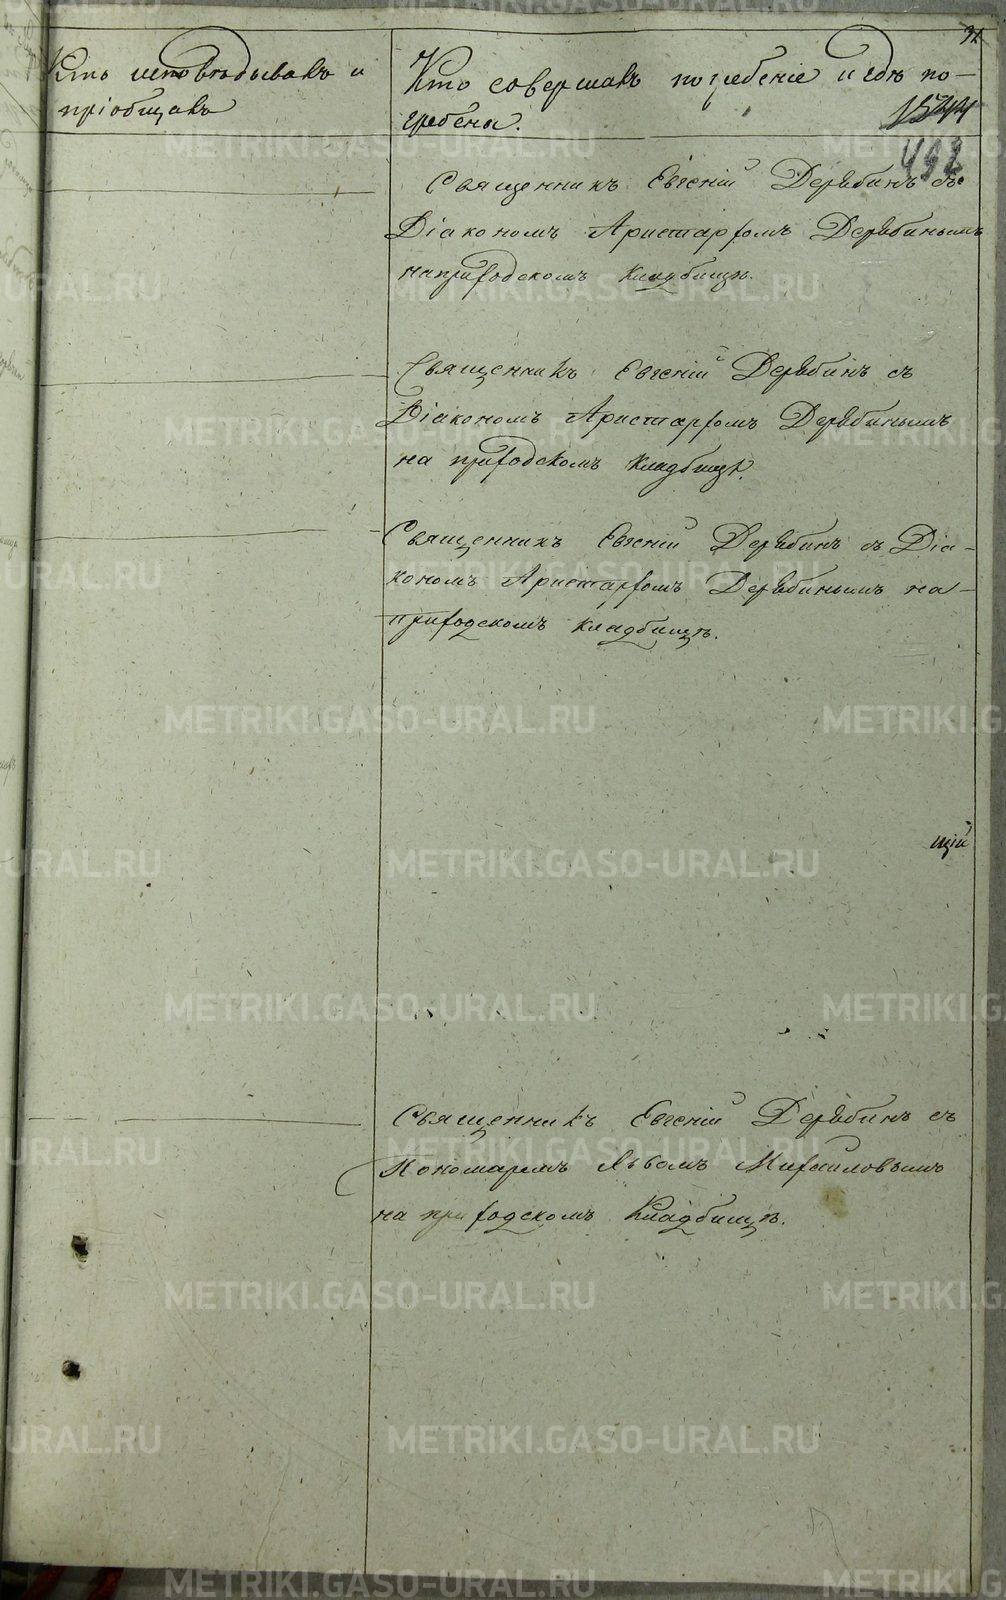 31
Кто исповѣдывалъ и
пріобщалъ
Кто совершалъ погребеніе и гдѣ по-
гребены.
1544
492
Священникъ Евгеній Дерябинъ съ
Діакономъ Аристархомъ Дерябинымъ
на приходскомъ кладбищѣ.
Священникъ Евгеній Дерябинъ съ
Діакономъ Аристархомъ Дерябинымъ
на приходскомъ кладбищѣ.
Священникъ Евгеній Дерябинъ съ Діа-
кономъ Аристархомъ Дерябинымъ на-
приходскомъ кладбищѣ.
щій
Священникъ Евгеній Дерябинъ съ
Пономаремъ Львомъ Михайловымъ
на приходскомъ Кладбищѣ.
METRIKI.GASO-URAL.RU